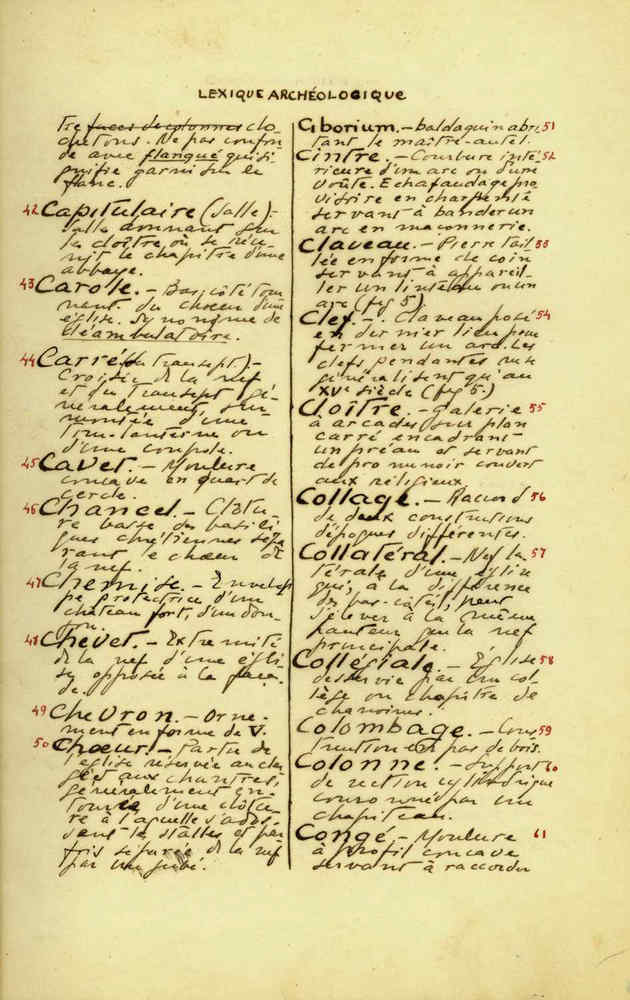 LEXIQUE ARCHÉOLOGIQUE
tré faces de colonnes clo
chetons. Ne pas confon
dre avec flanqué qui si
gnifie garni sur le
flanc.
42 Capitulaire (salle) -
salle donnant sur
le cloître, où se réu-
nit le chapitre d'une
abbaye.
43 Carole. - Bas, côté tour
nant du chœur d'une
église. Synonyme de
déambulatoire.
44 Carré (du transept). -
Croisée de la nef
et du transept gé-
néralement sur-
montée d'une
tour-lanterne ou
d'une coupole.
45 Cavet. - Moulure
concave en quart de
cercle.
46 Chancel. - Clôtu-
re basse des basili
ques chrétiennes sépa
rant le chœur de
la nef.
47 Chemise. - Envelop
pe protectrice d'un
château fort, d'un don-
jon.
48 Chevet. - Extrémité
de la nef d'une égli
se, opposée à la faça
de.
49 Chevron. - Orne-
ment en forme de V.
50 Chœur. - Partie de
l'église réservée au cler
gé et aux chantres,
généralement en-
tourée d'une clôtu-
re à laquelle s'ados-
sent les stalles et par
fois séparée de la nef
par un jubé.
Ciborium. - baldaquin abri 51
tant le maître-autel.
Cintre. - Courbure inté 52
rieure d'un arc ou d'une
voûte. Echafaudage pro
visoire en charpente
servant à bander un
arc en maçonnerie.
Claveau. - Pierre tail 53
lée en forme de coin
servant à appareil-
ler un linteau ou un
arc (fig 5)
Clef. - Claveau posé 54
en dernier lieu pour
fermer un arc. Les
clefs pendantes ne se
généralisent qu'au
XVe siècle (fig 5.)
Cloître. - galerie 55
à arcades sur plan
carré encadrant
un préau et servant
de promenoir couvert
aux religieux.
Collage. - Raccord 56
de deux constructions
d'époques différentes.
Collatéral. - Nef la 57
térale d'une église
qui, à la différence
des bas-côtés, peut
s'élever à la même
hauteur que la nef
principale.
Collégiale. - Église 58
desservie par un col
lège ou chapitre de
chanoines.
Colombage. - Cons 59
truction en pas de bois.
Colonne. - Support 60
de section cylindrique
couronné par un
chapiteau.
Congé. - Moulure 61
à profil concave
servant à raccorder